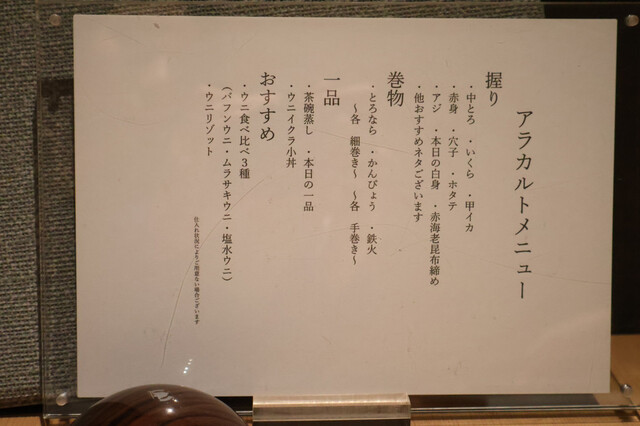 アラカルトメニュー
握り
・中とろ ・いくら ・甲イカ
・赤身 ・穴子 ・ホタテ
・アジ ・本日の白身 ・赤海老昆布締め
・他おすすめネタございます
巻物
・とろなら ・かんぴょう ・鉄火
〜各 細巻き〜 〜各 手巻き〜
一品
・茶碗蒸し ・本日の一品
・ウニイクラ小丼
おすすめ
・ウニ食べ比べ3種
(バフンウニ・ムラサキウニ・塩水ウニ)
・ウニリゾット
仕入れ状況によりご用意ない場合ございます